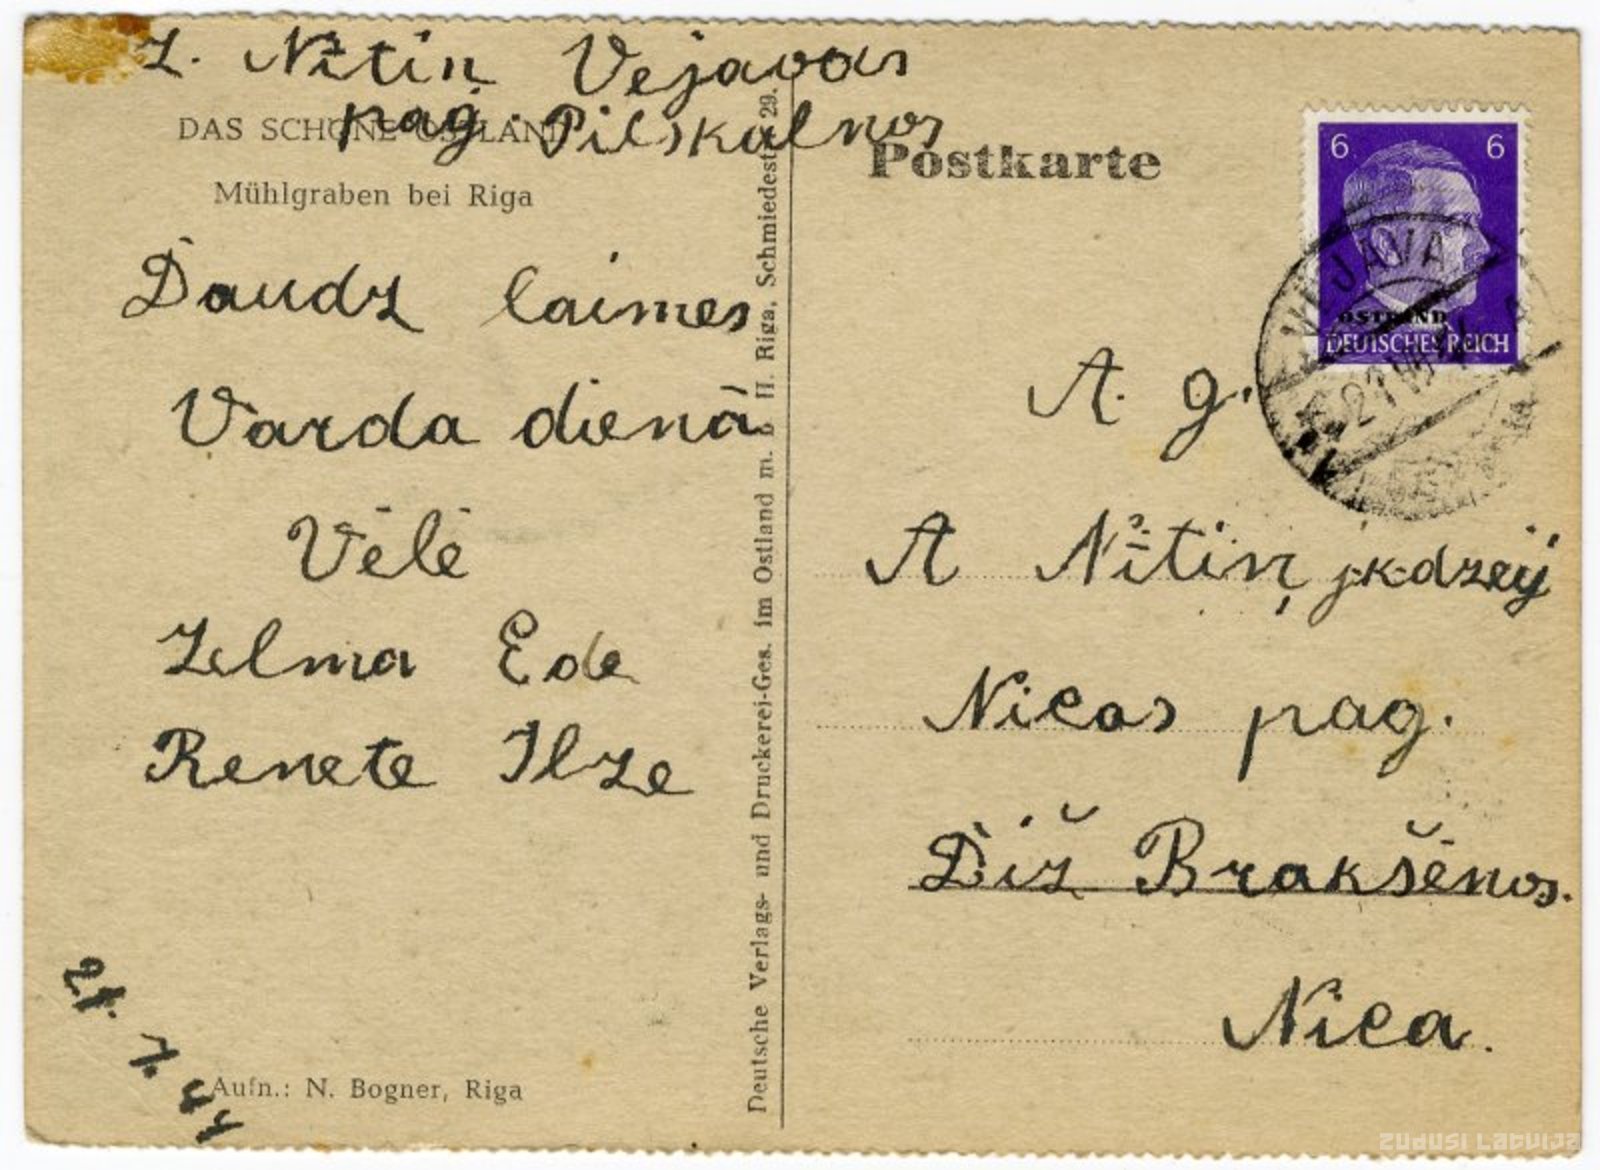 Z. Nītiņ Vejavas
pag. Pilskalnos
DAS SCHÖNE OSTLAND
Mühlgraben bei Riga
Daudz laimes
Varda dienā
Vēlē
Zelma Ede
Renete Ilze
21. 4. 44
Aufn.: N. Bogner, Riga
Deutsche Verlags- und Druckerei-Ges. im Ostland m. b. H. Riga, Schmiedestr. 29.
Postkarte
6 6
OSTLAND
DEUTSCHES REICH
A. g.
A Nītiņ
Nicas pag.
Diž Brakšēnos.
Nica.
zudusi latvija